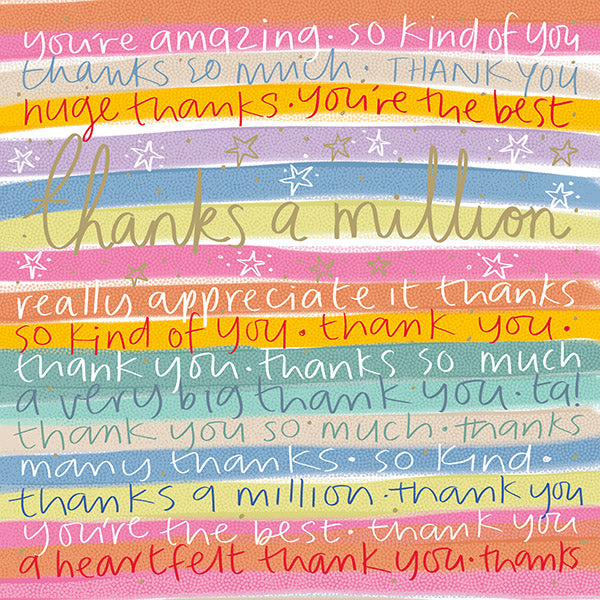 you're amazing. so kind of you
thanks so much. THANK YOU
huge thanks. you're the best
thanks a million
really appreciate it thanks
so kind of you. thank you.
thank you. thanks so much
a very big thank you. ta!
thank you so much. thanks
many thanks. so kind.
thanks a million. thank you
you're the best. thank you
a heartfelt thank you. thanks